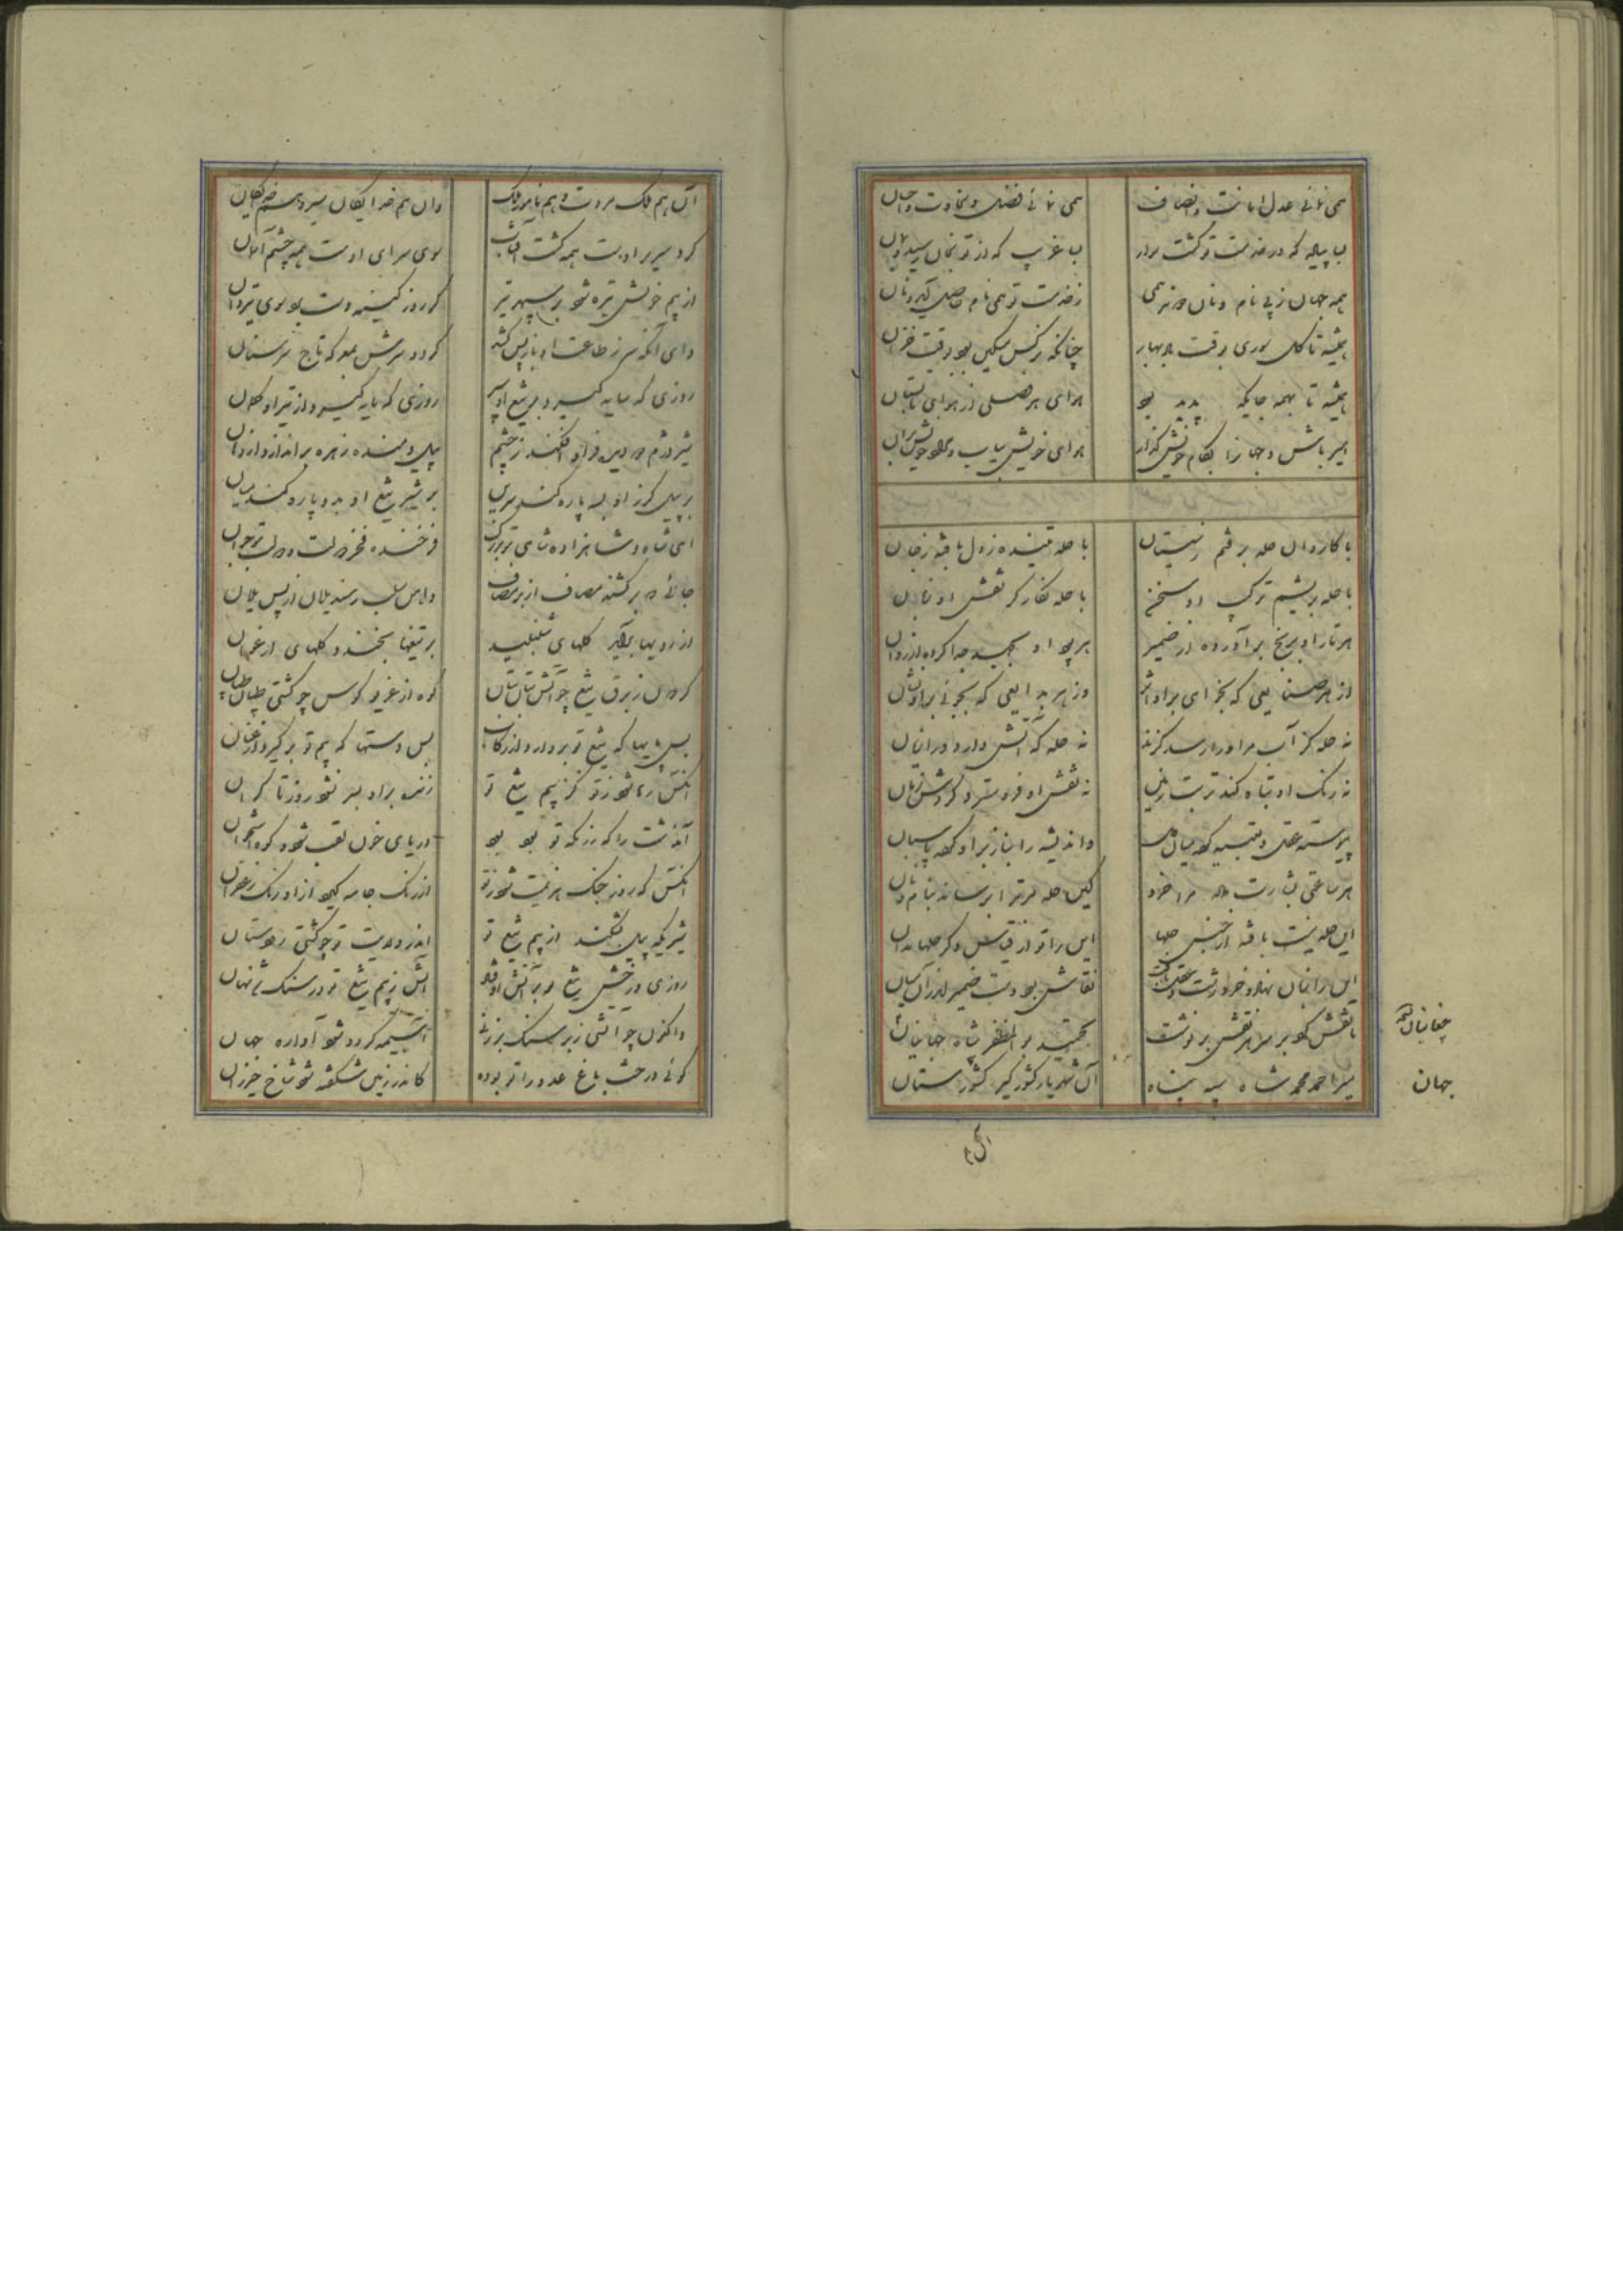 همی نمائی عدل امانت و انصاف همی نمائی فضل و سخاوت و احسان
بسا پیاده که در خدمت تو گشت سوار بسا غریب که از تو بخان رسید و بمان
همه جهان ز پی نام و نان دوند همی ز خدمت تو همی نام حاصل آید و نان
همیشه تا گل سوری بوقت بهار چنانکه نرگس مشکین بود وقت خزان
همیشه تا بهمه جایکه پدید بود هوای هر فصلی از هوای تابستان
امیر باش و جهانرا بکام خویش گذار هوای خویش بیاب و
با کاروان حله برفتم ز سیستان با حله تنیده ز دل بافته ز جان
با حله بریشم ترکیب او سخن با حله نگارگر نقش او زبان
هر تار او برنج برآورده از ضمیر هر پود او بجهد جدا کرده از روان
از هر صنایعی که بخواهی برو اثر وز هر بدایعی که بجوئی برو نشان
نه حله کز آب مر اورا رسد گزند نه حله کز آتش دارد ورا زیان
نه رنگ او تباه کند تربت زمین نه نقش او فرو سترد گردش زمان
پیوسته عقل و اندیشه را بناز برو کرده پاسبان
هر ساعتی بشارت داد مرا خرد کین حله مر ترا برساند بنام و نان
این حله نیست بافته از جنس حلها این را تو از قیاس دگر حلها مدان
این را زبان نهاد و خرد رشت و عقل بافت نقاش بود دست ضمیر اندر آن میان
تا نقش کرد بر سر هر نقش بر نوشت بو المظفر شاه چغانیان
میر احمد محمد شاه سپه پناه آن شهریار کشورگیر کشور ستان
چغانیان
جهان
آن هم ملک مروت و هم نامور ملک وان هم خدایگان سیر و هم خدایگان
گرد سریر اوست همه گشت آفتاب سوی سرای اوست همه چشم آسمان
از بیم خویش تیره شود بر سپهر تیر گر روز کینه دست برد سوی تیردان
وای آنکه سر ز طاعت او باز پس کشد گردد سرش بمعرکه تاج سر سنان
روزی که سایه گیرد بر تیغ او سپر روزی که مایه گیرد از تیر او کمان
شیر دژم دو دیده فرو افکند ز چشم پیل دمنده زهره براندازد از دهان
بر پیل گرز او بسه پاره کند سرین بر شیر تیغ او بدو پاره کند میان
ای شاه و شاهزاده و شاهی بتو بزرگ فرخنده فخر دولت و دولت بتو جوان
جائی که بر کشند مصاف از بر مصاف و یلان از پس یلان
از رویها گلهای شنبلید بر تیغها بخندد گلهای ارغوان
گردان ز برق تیغ چو آتش کوه از غریو کوس چو کشتی
بس پایها که تیغ تو بردارد از رکاب بس دستها که بیم تو برگیرد از عنان
آنکس رها شود ز تو کز بیم تیغ تو زنده برادر نشود روز تا کران
آن دشت را که رزمگه تو بود بود دریای خون لقب شود و کوه استخوان
آنکس که روز جنگ هزیمت شود ز تو از رنگ جامه گیرد ازو رنگ زعفران
شیریکه پیل بشکند از بیم تیغ تو اندر ولایت تو چو گشتی ز دوستان
روزی درخش تیغ تو بر آتش اوفتد آتش ز بیم تیغ تو در سنگ شد نهان
واکنون چو آهنی زبر سنگ بر زنی آسیمه گردد و شود آواره جهان
گوئی درخت باغ عدو را تو بوده کاندر زمین شکفته شود شاخ خیزران